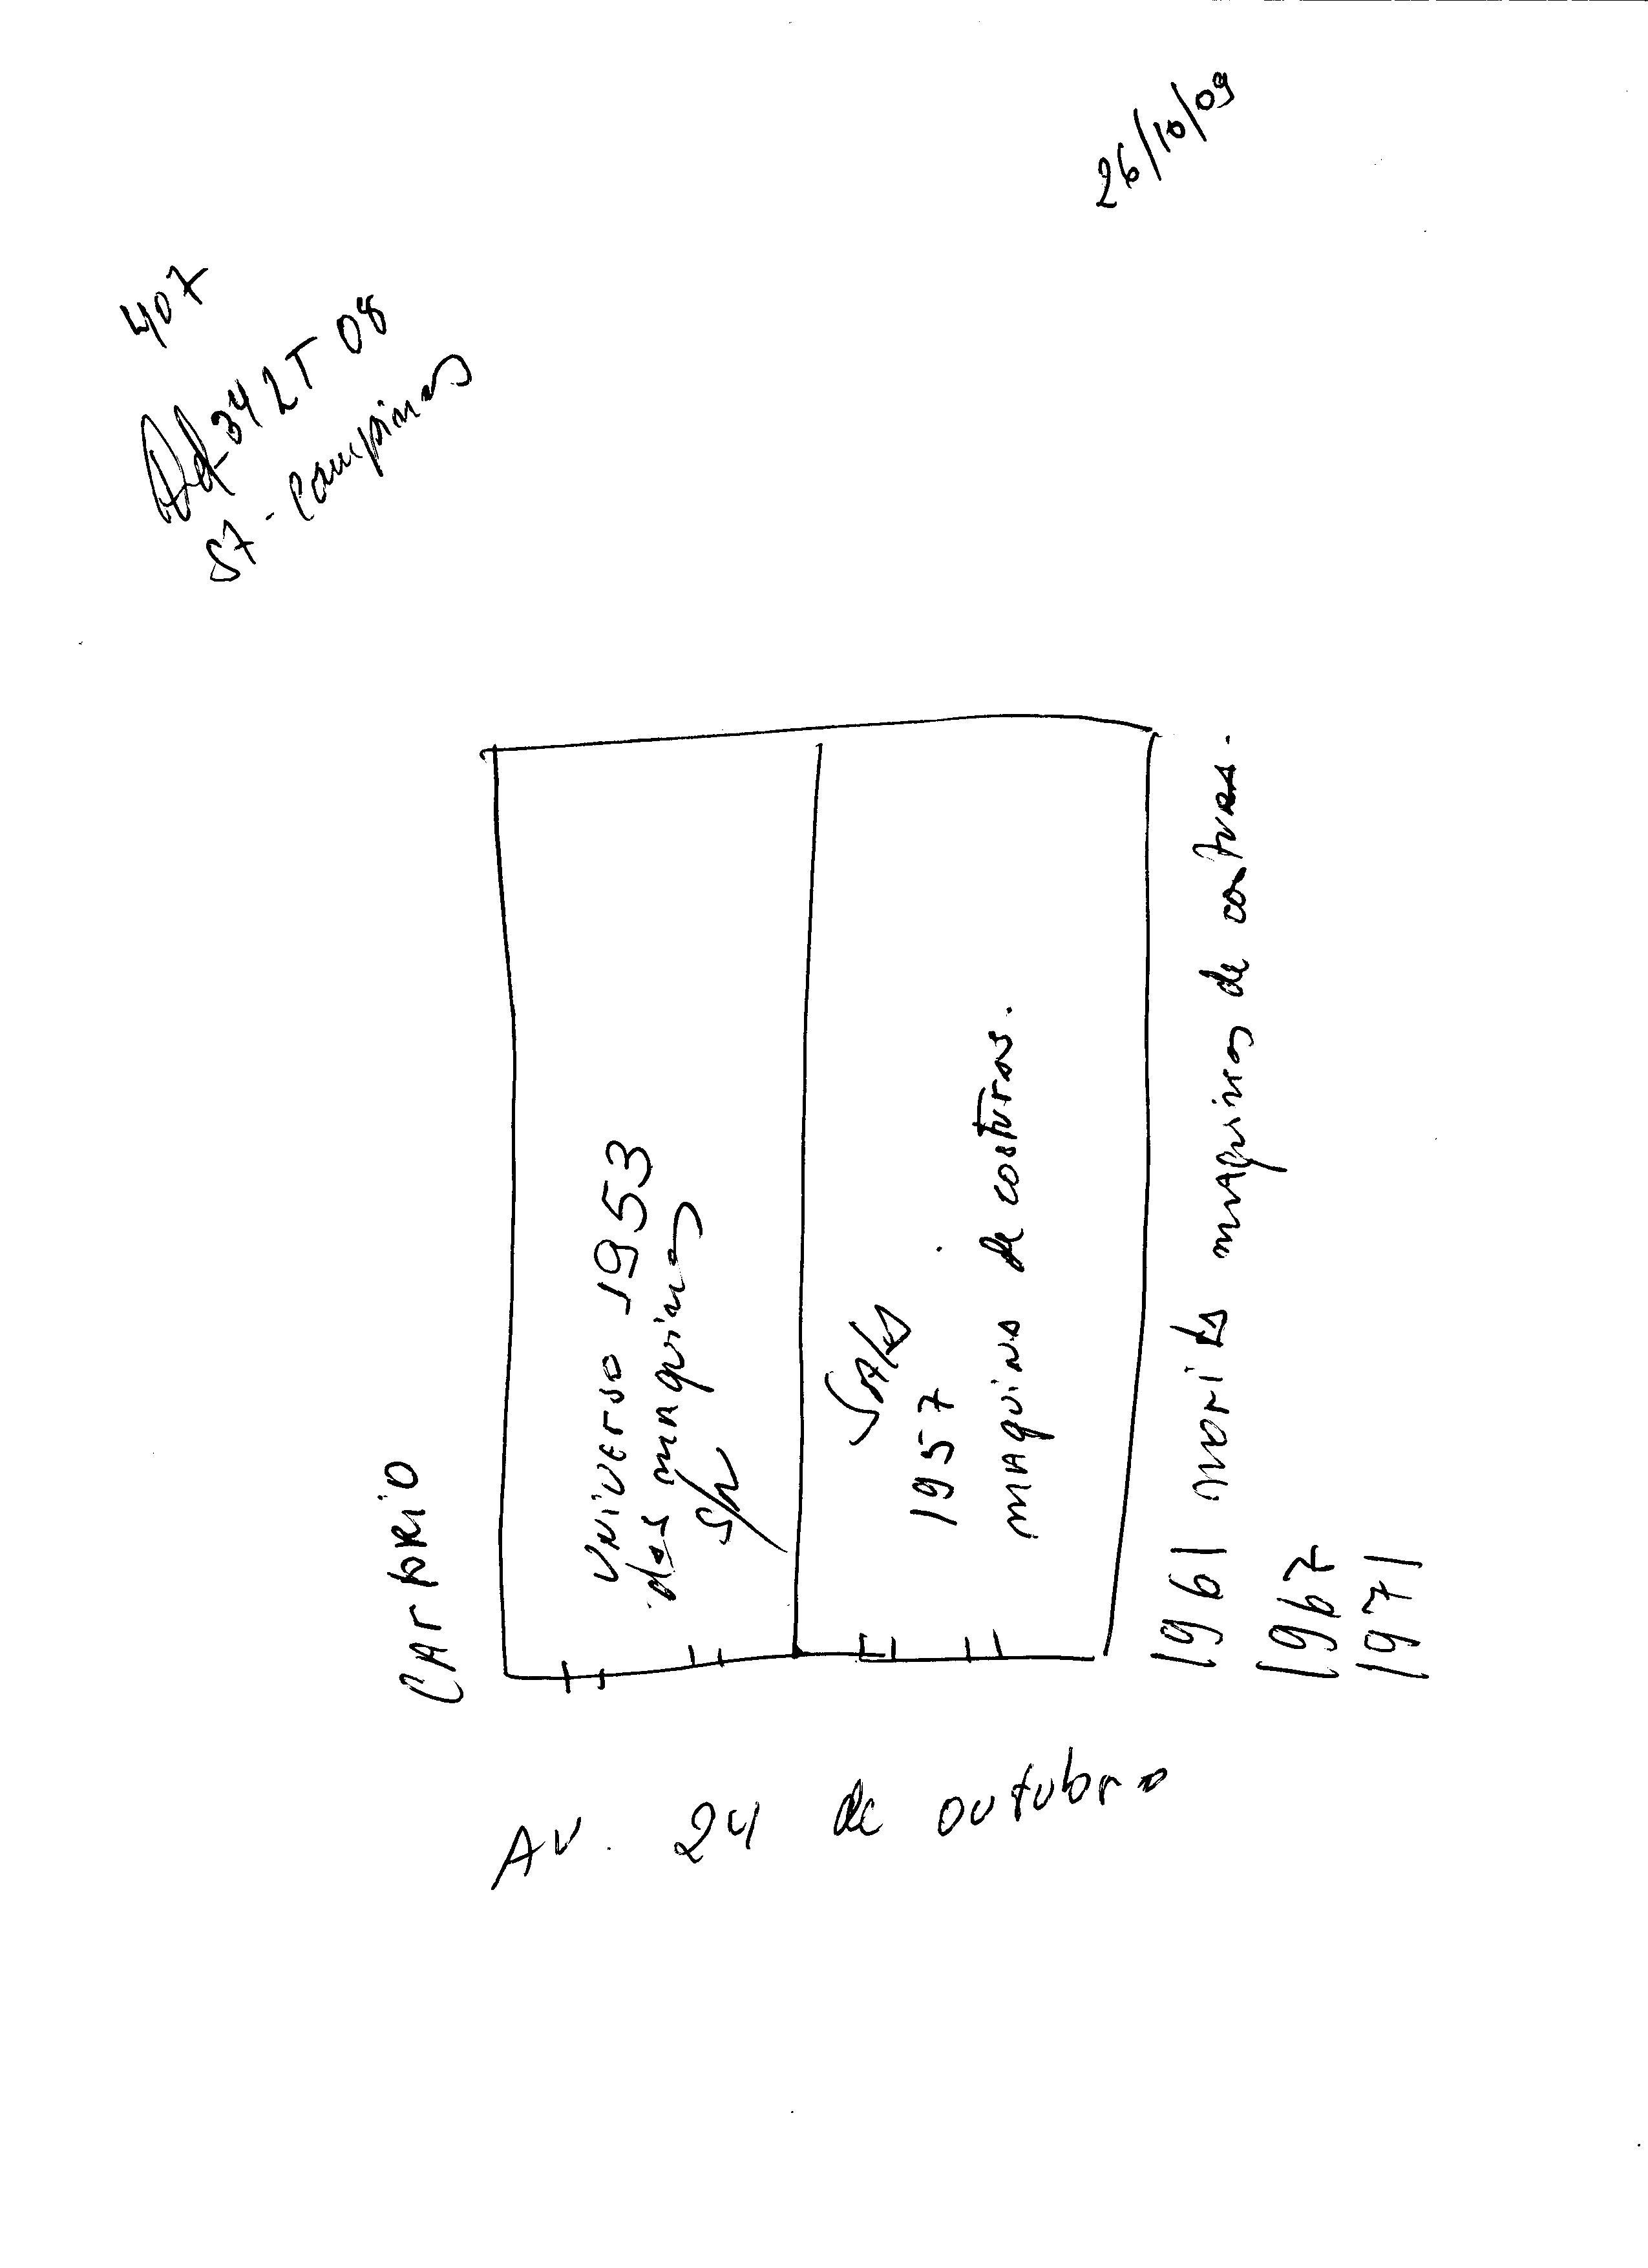 26/10/09
407
Qd-34 LT 08
ST-Campinas
CArtORIO
UNiVErso 1953
das mAquinas
S/N
SAlAS
1957
mAquinas de costuras.
1961 mori maquinas de costuras.
1967
1971
AV. 24 de outubro